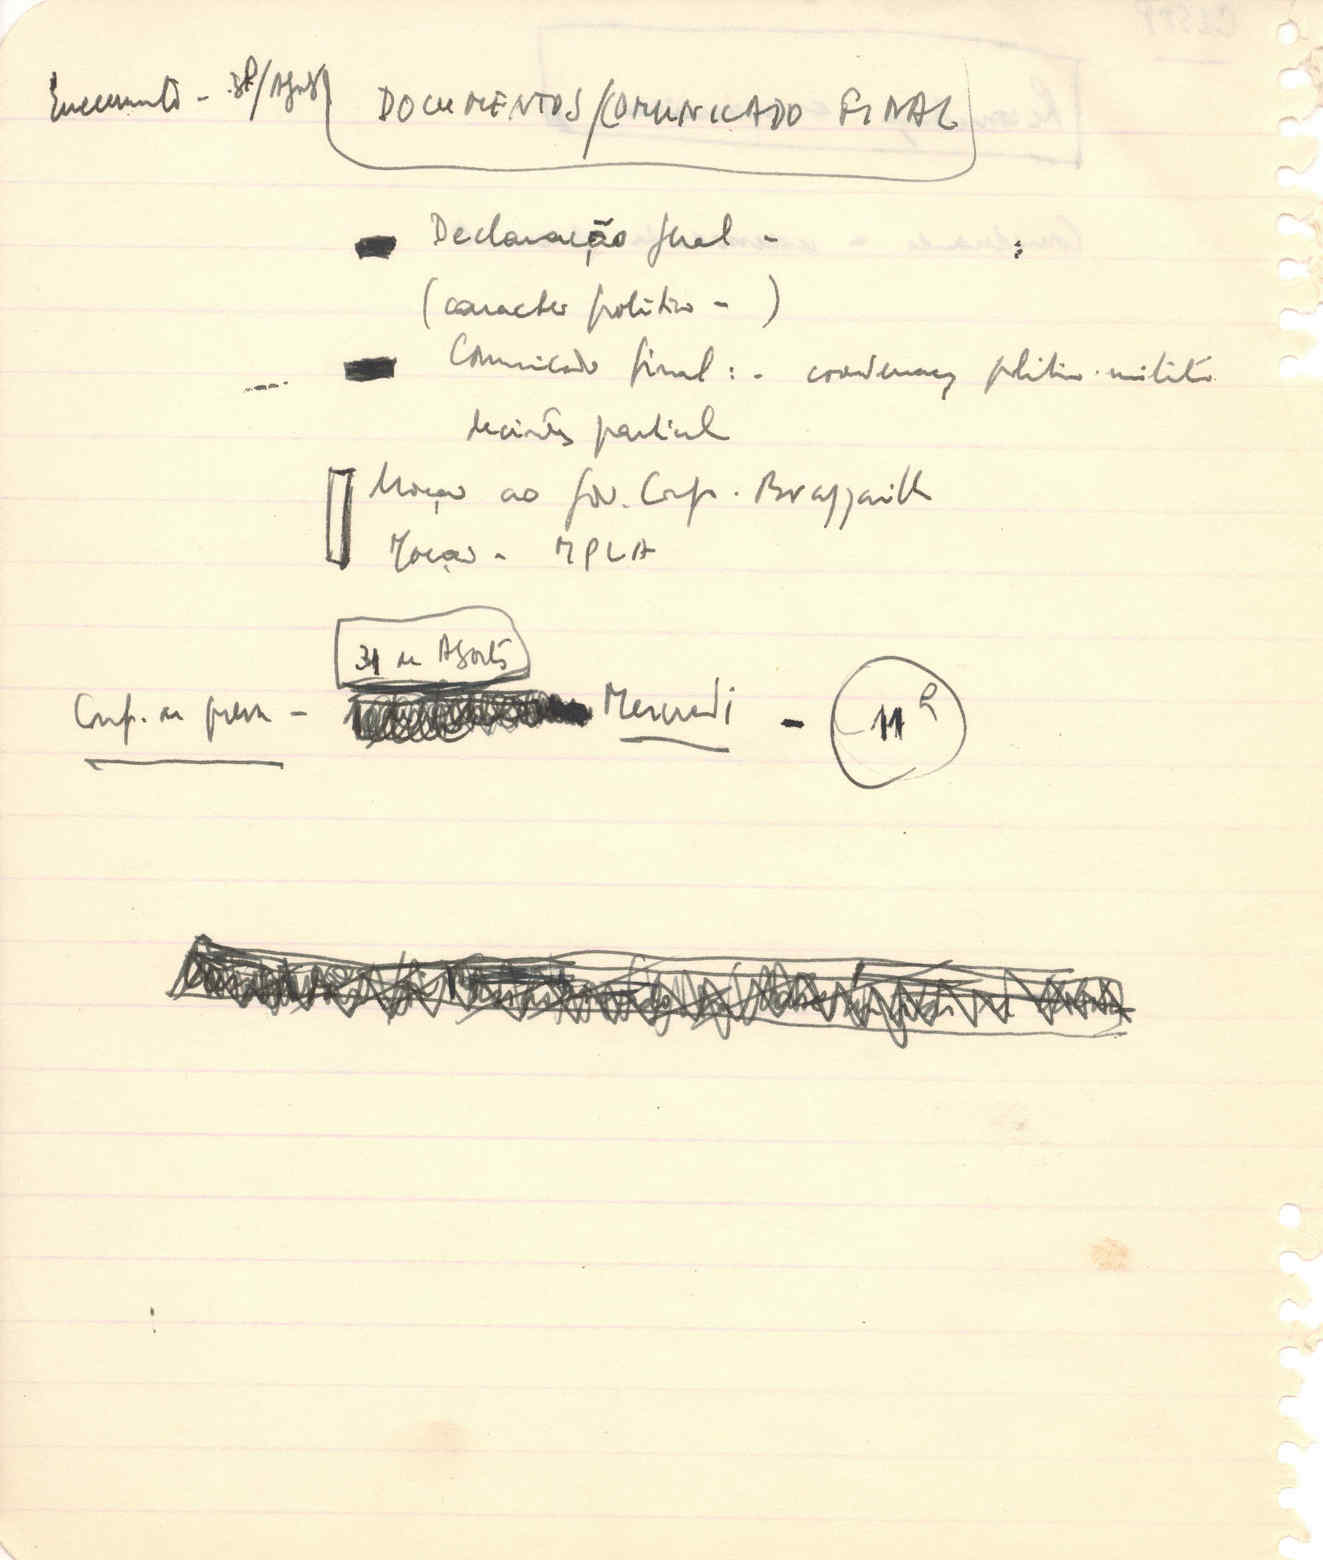 Encerramento - /Agosto DOCUMENTOS/COMUNICADO FINAL
Declaração geral -
(caracter político - )
Comunicado final: - coordenação político-militar
decisões particul
Moção ao Gov. Congo. Brazzaville
Moção - MPLA
31 de Agosto
Conf. de presse - Mercredi - 11h